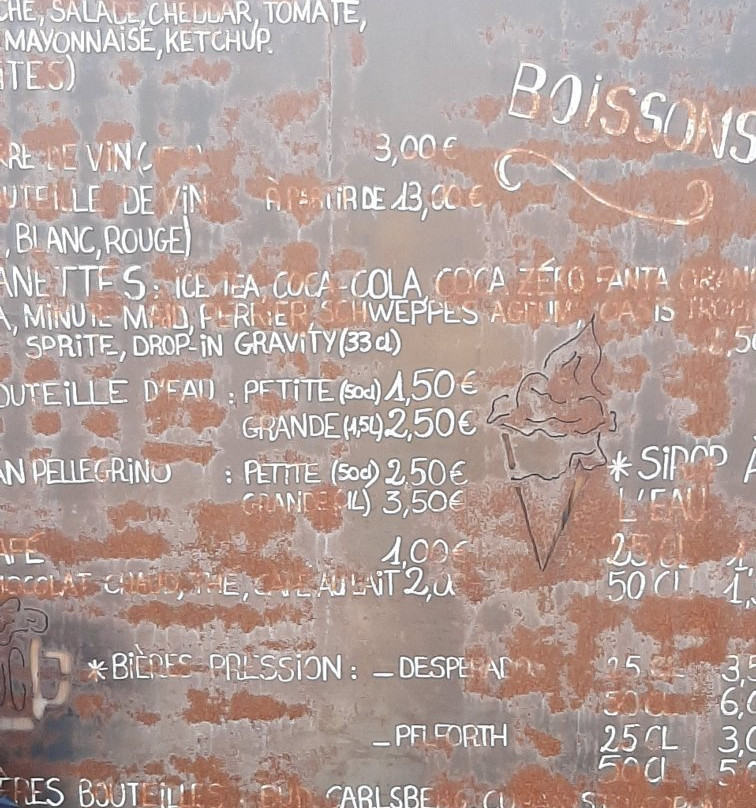 CHE, SALADE, CHEDDAR, TOMATE,
MAYONNAISE, KETCHUP.
ITES)
BOISSONS
RRE DE VIN 3,00€
UTEILLE DE VIN À PARTIR DE 13,00€
, BLANC, ROUGE)
ANETTES : ICE TEA, COCA-COLA, COCA ZÉRO FANTA ORAN
A, MINUTE MAID, PERRIER, SCHWEPPES AGRUM, OASIS TROP
SPRITE, DROP-IN GRAVITY (33cl) 2,50
OUTEILLE D'EAU : PETITE (50cl) 1,50€
GRANDE (1,5L) 2,50€
AN PELLEGRINO : PETITE (50cl) 2,50€
GRANDE (1L) 3,50€
*SIROP A
L'EAU
AFÉ 1,00€
25 CL 1,
HOCOLAT CHAUD, THE, CAFE AU LAIT 2,0
50 CL 1,
*BIÈRES PRESSION : - DESPERADO 25 CL 3,5
50 CL 6,0
- PELFORTH 25 CL 3,0
50 CL 5,
ÈRES BOUTEILLES : CARLSBE